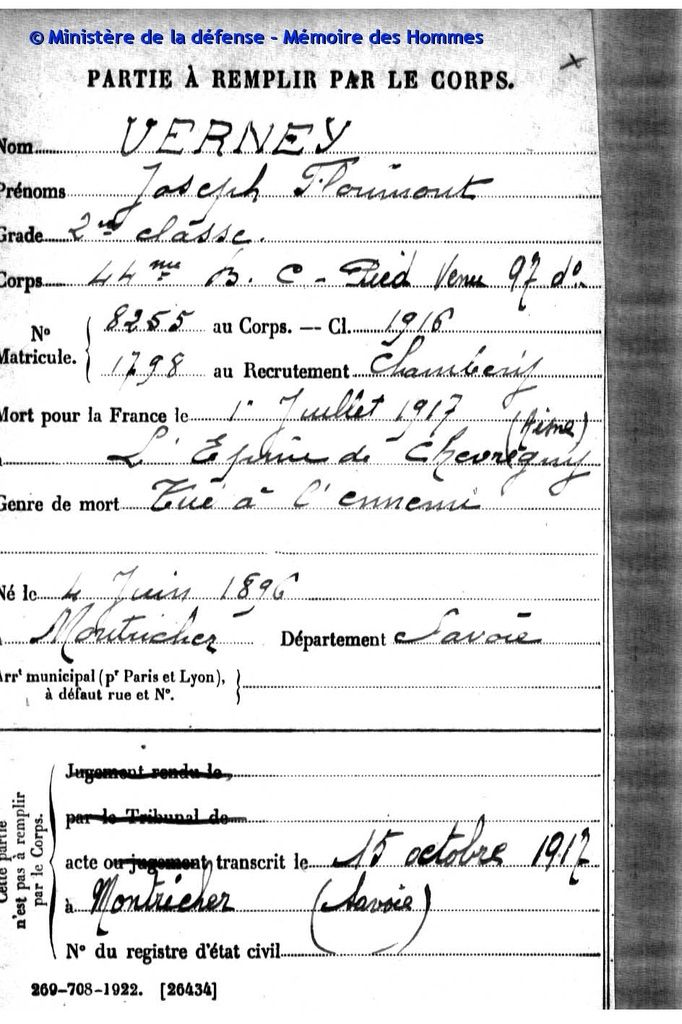 © Ministère de la défense - Mémoire des Hommes
PARTIE À REMPLIR PAR LE CORPS.
Nom VERNEY
Prénoms Joseph Florimont
Grade 2me classe.
Corps 44me B. C - Pied Venu 97 do
No Matricule. { 8255 au Corps. — Cl. 1916
1798 au Recrutement Chambéry
Mort pour la France le 1r Juillet 1917
(Aisne)
L'Epine de Chevregny
Genre de mort Tué à l'ennemi
Né le 4 Juin 1896
Montricher Département Savoie
Arrt municipal (pr Paris et Lyon), }
à défaut rue et No.
Cette partie n'est pas à remplir par le Corps.
Jugement rendu le,
par le Tribunal de
acte ou jugement transcrit le 15 octobre 1917
à Montricher (Savoie)
No du registre d'état civil
269-708-1922. [26434]